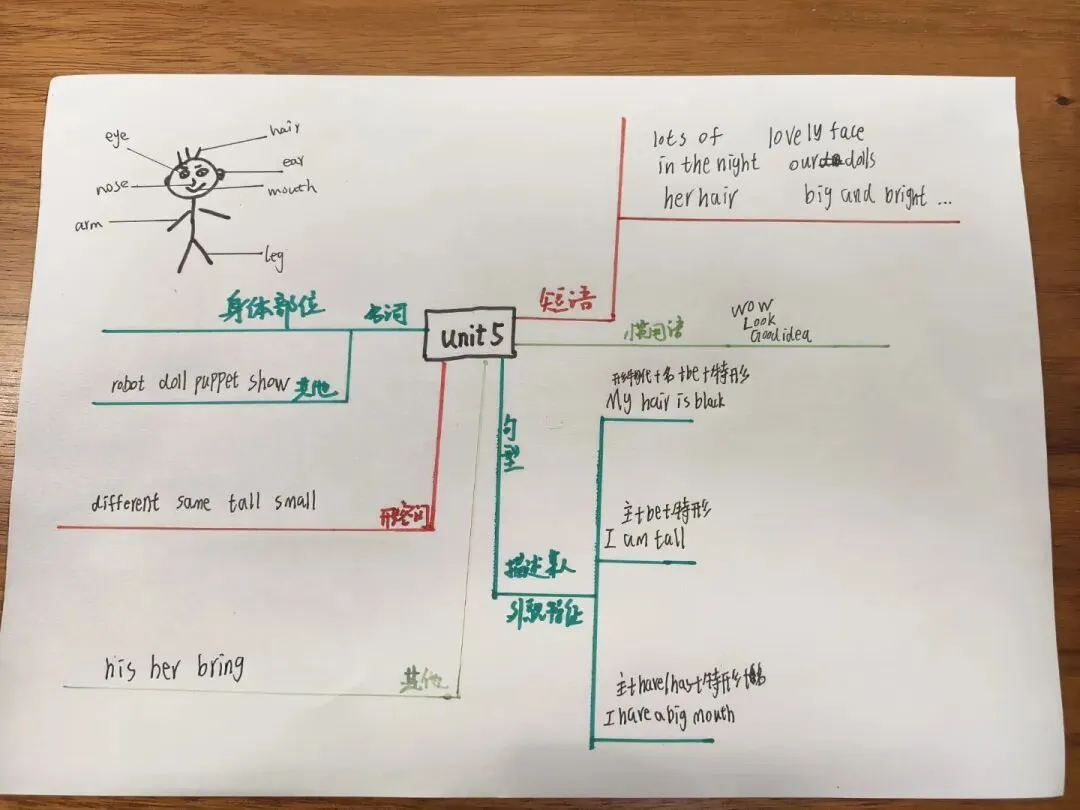 eye
hair
nose
ear
mouth
arm
leg
身体部位 名词
robot doll puppet show 其他
different same tall small
形容词
his her bring 其他
unit 5
短语
lots of lovely face
in the night our dolls
her hair big and bright ...
习惯用语
WOW
Look
Good idea
句型
描述某人
外貌特征
My hair is black
主+be+特形
I am tall
主+have/has+特形+名
I have a big mouth